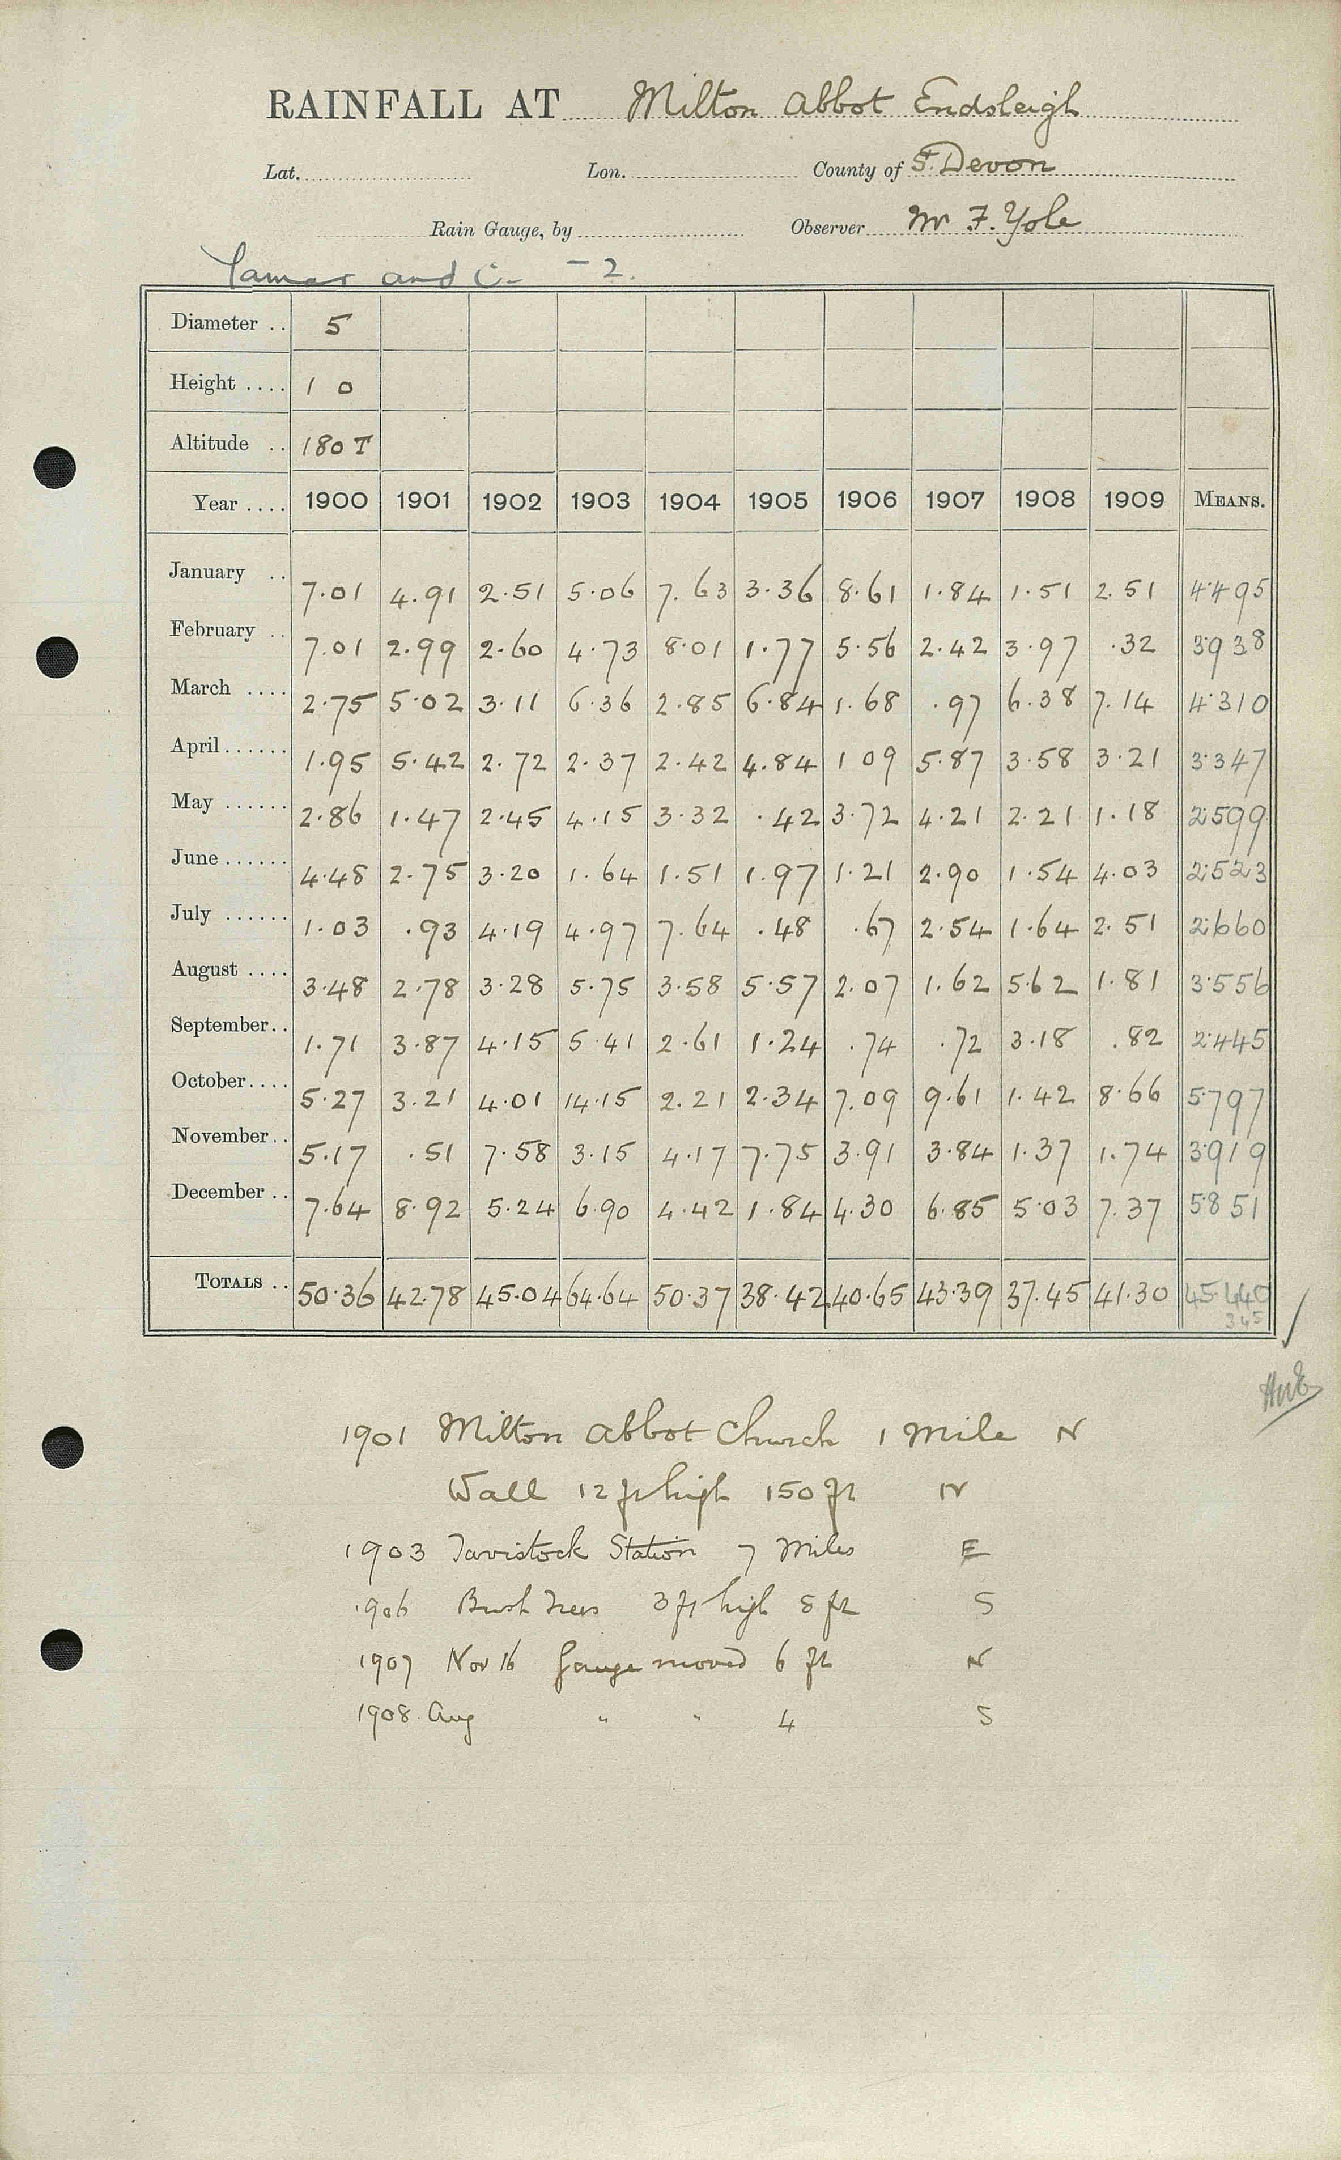 RAINFALL AT Milton Abbot Endsleigh
Lat. Lon. County of S. Devon
Rain Gauge, by Observer Mr F. Yole
Tamar and C. - 2.
Diameter .. 5
Height .... 1 0
Altitude .. 180 T
Year .... 1900 1901 1902 1903 1904 1905 1906 1907 1908 1909 MEANS.
January .. 7.01 4.91 2.51 5.06 7.63 3.36 8.61 1.84 1.51 2.51 4.495
February .. 7.01 2.99 2.60 4.73 8.01 1.77 5.56 2.42 3.97 .32 3.938
March .... 2.75 5.02 3.11 6.36 2.85 6.84 1.68 .97 6.38 7.14 4.310
April ...... 1.95 5.42 2.72 2.37 2.42 4.84 1 09 5.87 3.58 3.21 3.347
May ...... 2.86 1.47 2.45 4.15 3.32 .42 3.72 4.21 2.21 1.18 2.599
June ...... 4.48 2.75 3.20 1.64 1.51 1.97 1.21 2.90 1.54 4.03 2.523
July ...... 1.03 .93 4.19 4.97 7.64 .48 .67 2.54 1.64 2.51 2.660
August .... 3.48 2.78 3.28 5.75 3.58 5.57 2.07 1.62 5.62 1.81 3.556
September.. 1.71 3.87 4.15 5.41 2.61 1.24 .74 .72 3.18 .82 2.445
October.... 5.27 3.21 4.01 14.15 2.21 2.34 7.09 9.61 1.42 8.66 5.797
November.. 5.17 .51 7.58 3.15 4.17 7.75 3.91 3.84 1.37 1.74 3.919
December .. 7.64 8.92 5.24 6.90 4.42 1.84 4.30 6.85 5.03 7.37 5.851
TOTALS .. 50.36 42.78 45.04 64.64 50.37 38.42 40.65 43.39 37.45 41.30 45.440
345
1901 Milton Abbot Church 1 Mile N
Wall 12 ft high 150 ft N
1903 Tavistock Station 7 Miles E
1906 Bush Trees 3 ft high 8 ft S
1907 Nov 16 Gauge moved 6 ft N
1908 Aug " " 4 S